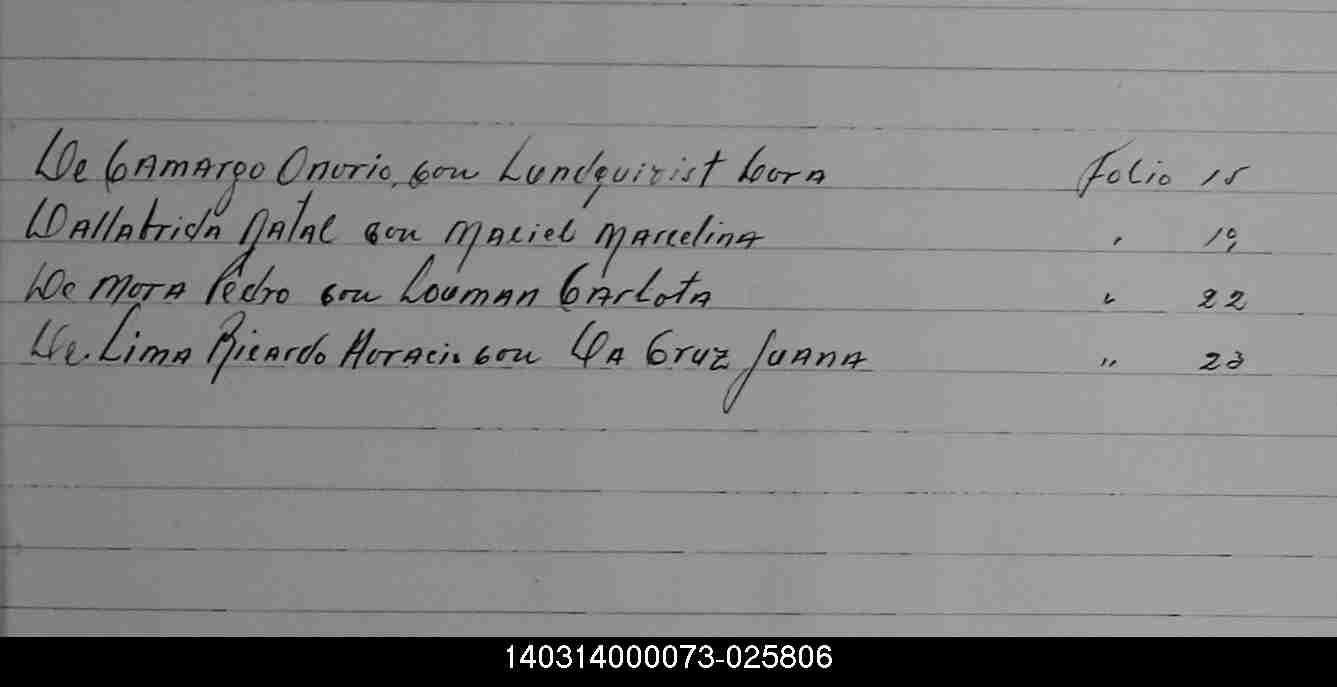 De Camargo Onorio con Lundquivist Cora Folio 15
Dallabrida Natal con Maciel Marcelina " 19
De Mora Pedro con Louman Carlota " 22
De Lima Ricardo Horacio con Da Cruz Juana " 23
140314000073-025806